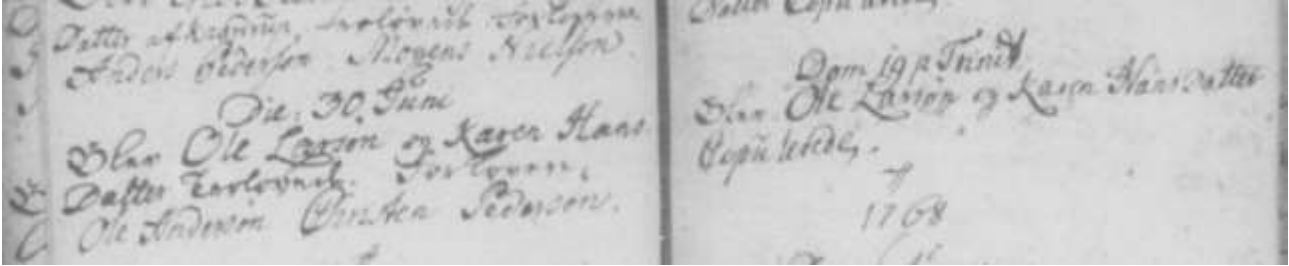 Datter af Krannum, trolovede Forlovere
Anders Pederson Mogens Nielson.
Die. 30. Juni
Blev Ole Larson og Karen Hans
Datter Trolovede. Forlovere,
Ole Anderson Christen Pederson.
Datter Copulerede,
Dom 19 p Trinit
Blev Ole Larson og Karen Hans Datter
Copulerede,.
1768